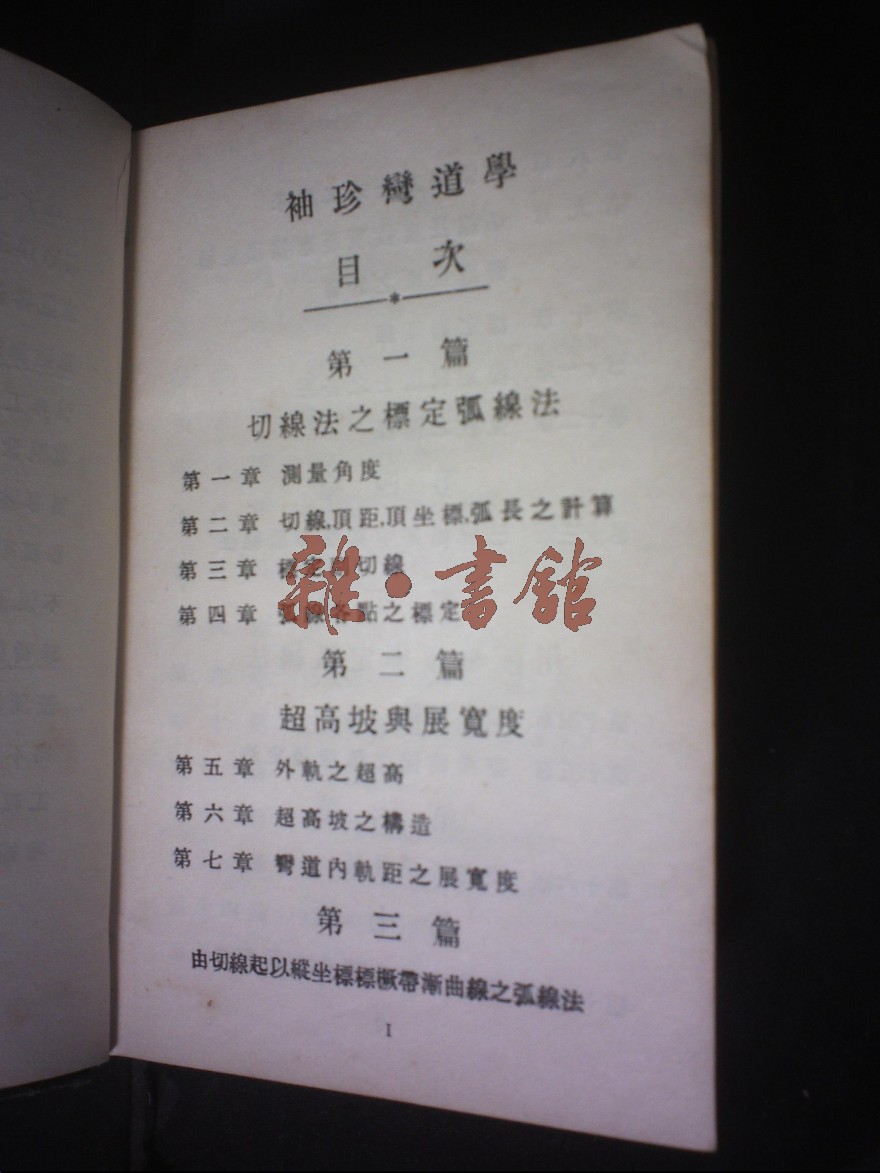 袖珍彎道學
目次
第一篇
切線法之標定弧線法
第一章 測量角度
第二章 切線,頂距,頂坐標,弧長之計算
第三章 標 切線
第四章 弧線各點之標定
第二篇
超高坡與展寬度
第五章 外軌之超高
第六章 超高坡之構造
第七章 彎道內軌距之展寬度
第三篇
由切線起以縱坐標標橛帶漸曲線之弧線法
I
雜·書館